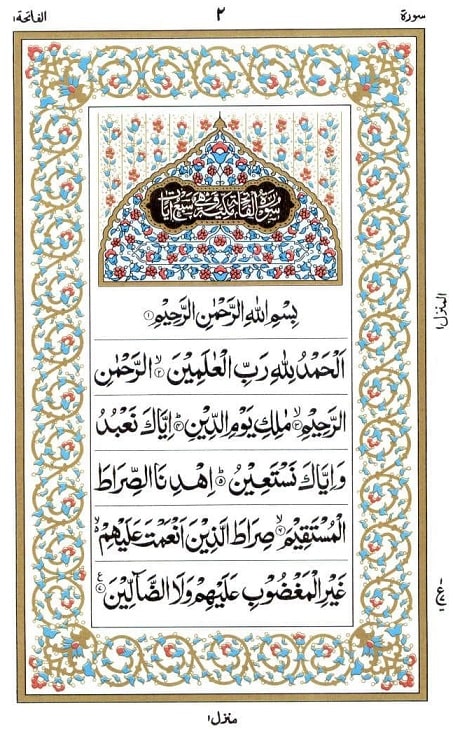 سورة ٢ الفاتحة ١
سورة الفاتحة مكية وهي سبع آيات
بِسْمِ اللّٰهِ الرَّحْمٰنِ الرَّحِيْمِ ۝۱
اَلْحَمْدُ لِلّٰهِ رَبِّ الْعٰلَمِيْنَ ۙ۝۲ الرَّحْمٰنِ
الرَّحِيْمِ ۙ۝۳ مٰلِكِ يَوْمِ الدِّيْنِ ؕ۝۴ اِيَّاكَ نَعْبُدُ
وَاِيَّاكَ نَسْتَعِيْنُ ؕ۝۵ اِهْدِنَا الصِّرَاطَ
الْمُسْتَقِيْمَ ۙ۝۶ صِرَاطَ الَّذِيْنَ اَنْعَمْتَ عَلَيْهِمْ ۙ
غَيْرِ الْمَغْضُوْبِ عَلَيْهِمْ وَلَا الضَّآلِّيْنَ ۝۷ ع
المنزل ١
منزل ١